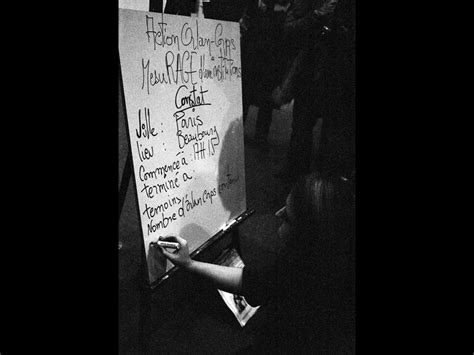 Action Orlan-Corps
MesuRAGE d'une institutions
Constat
Ville : Paris
lieu : Beaubourg
Commencé à : 14H15
terminé à :
temoins
Nombre d'Orlan Corps contenu